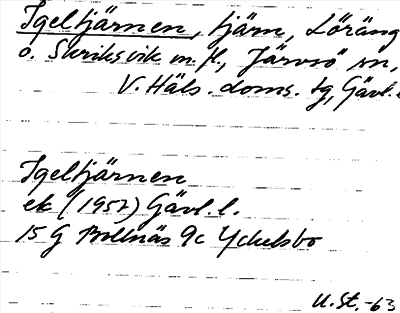 Igeltjärnen, tjärn, Löräng
o. Skriksvik m. fl., Järvsö sn,
V. Häls. doms. tg, Gävl.
Igeltjärnen
ek (1957) Gävl. l.
15 G Bollnäs 9c Yckelsbo
U. St. -63